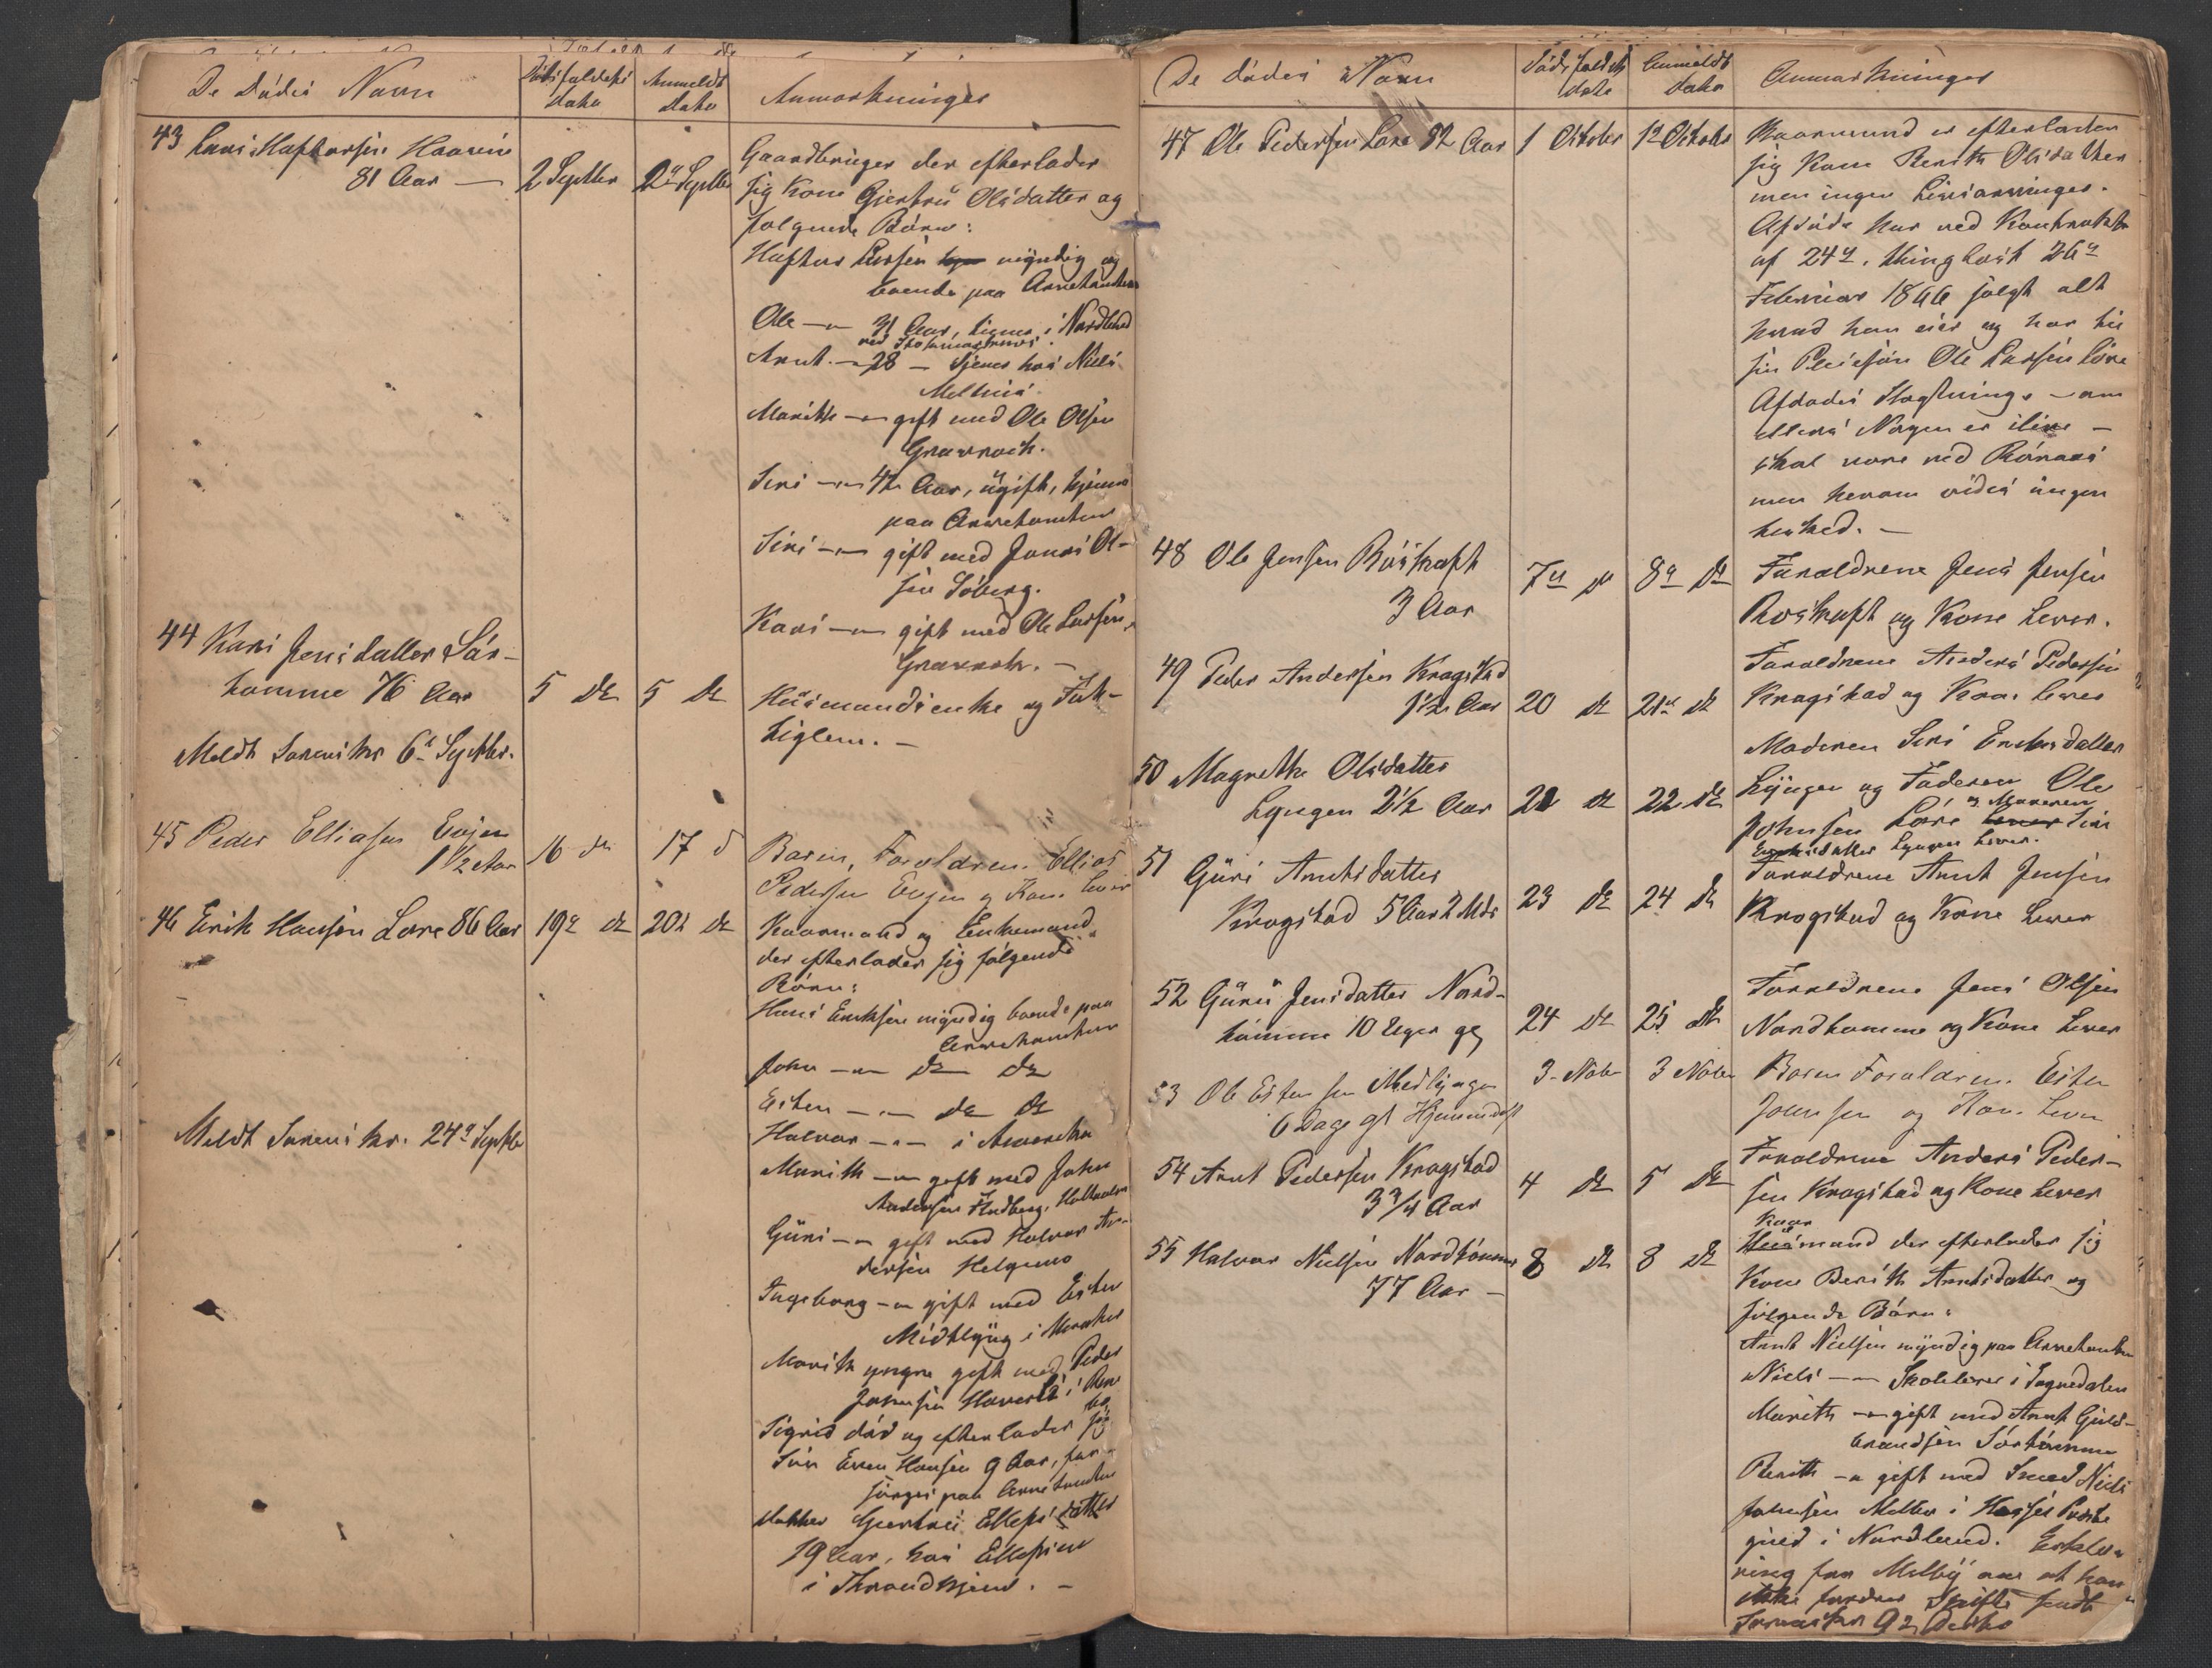 De Dødes Navn
Dødsfaldets
Dato
Anmeldt
Dato
Anmærkninger
43 Lars Haftorsen Haarin
81 Aar — 2 Septbr 2den Septbr
Gaardbruger der efterlader
sig Kone Gjertru Olsdatter og
følgende Børn:
Haftor Larsen myndig og
boende paa Annekontten
Ole —"— 31 Aar, tjener i Nordland
ved
Arnt —"— 28 — tjener hos Niels
Melhus.
Marith —"— gift med Ole Olsen
Gravraak.
Siri —"— 42 Aar, ugift, hjemme
paa
Siri —"— gift med Jonas Ol-
sen Søberg.
Kari —"— gift med Ole Larsen
Gravraak. —
44 Kari Jensdatter Sør-
tømme 76 Aar 5 do 5 do
Huusmandsenke og Fat-
tiglem. —
Meldt Sorenskr 6te Septbr.
45 Peder Elliasen Evjen
1 1/2 Aar 16 do 17 d
Barn, Forældrene Ellias
Pedersen Evjen og Kone Lever
46 Erik Hansen Lere 86 Aar 19de do 20de do
Kaarmand og Enkemand
der efterlader sig følgende
Børn:
Hans Eriksen myndig boende paa
John —"— do do
Esten —"— do do
Halvor —"— i Amerika
Marith —"— gift med John
Andersen
Meldt Sorenskr. 24de Septbr
Guri —"— gift med Halvor An-
dersen Helgemo
Ingeborg —"— gift med Esten
Midtlyng i Meraker
Marith yngre gift med Peder
Johnsen
Sigrid død og efterlader sig
Søn Even Hansen 9 Aar, for-
sørges paa
Datter Gjertru Ellefsdatter
19 Aar, hos Ellefsen
i Throndhjem. —
De Dødes Navn
Dødsfaldets
Dato
Anmeldt
Dato
Anmærkninger
47 Ole Pedersen Lere 82 Aar 1 Oktober 12 Oktober
Kaarmand er efterladen
sig Kone Berith Olsdatter
men ingen Livsarvinger.
Afdøde har ved Kontrakt
af 24de, thinglæst 26de
Februar 1866 solgt alt
hvad han eier og har til
sin Pleiesøn Ole Larsen Lere
Afdødes Slægtninge — om
ellers Nogen er ilive —
skal være ved Røraas
men herom vides ingen
besked. —
48 Ole Jensen Røskaft
3 Aar 7de do 8de do
Forældrene Jens Jensen
Røskaft og Kone Lever.
49 Peder Andersen Krogstad
1 1/2 Aar 20 do 21de do
Forældrene Anders Pedersen
Krogstad og Kone Lever
50 Magrethe Olsdatter
Lyngen 2 1/2 Aar 21 do 22 do
Moderen Siri Eriksdatter
Lyngen og Faderen Ole
og Moderen
Johnsen Lere Lever Siri
Eriksdatter Lyngen Lever.
51 Guri Arntsdatter
Krogstad 5 Aar 2 Mdr 23 do 24 do
Forældrene Arnt Jensen
Krogstad og Kone Lever
52 Guru Jensdatter Nord-
tømme 10 Uger gl 24 do 25 do
Forældrene Jens Olsen
Nordtømme og Kone Lever
53 Ole Estensen Midtlyngen
6 Dage gl Hjemmedøbt 3 Novbr 3 Novbr
Barn Forældrene Esten
Johnsen og Kone Lever
54 Arnt Pedersen Krogstad
3 3/4 Aar 4 do 5 do
Forældrene Anders Peder-
sen Krogstad og Kone Lever
55 Halvor Nielsen Nordtømme
77 Aar — 8 do 8 do
Kaar
Huusmand der efterlader sig
Kone Berith Arntsdatter og
følgende Børn:
Arnt Nielsen myndig paa
Niels —"— Skolelærer i Soknedalen
Marith —"— gift med Arnt Guld-
brandsen Sørtømme
Berith —"— gift med Smed Niels
Johnsen Melbø i Hassel Præste
gjeld i Nordland. Erklæ-
ring fra Melby om at han
ikke fordrer Skifte sendt
Sorenskr 9de Desbr